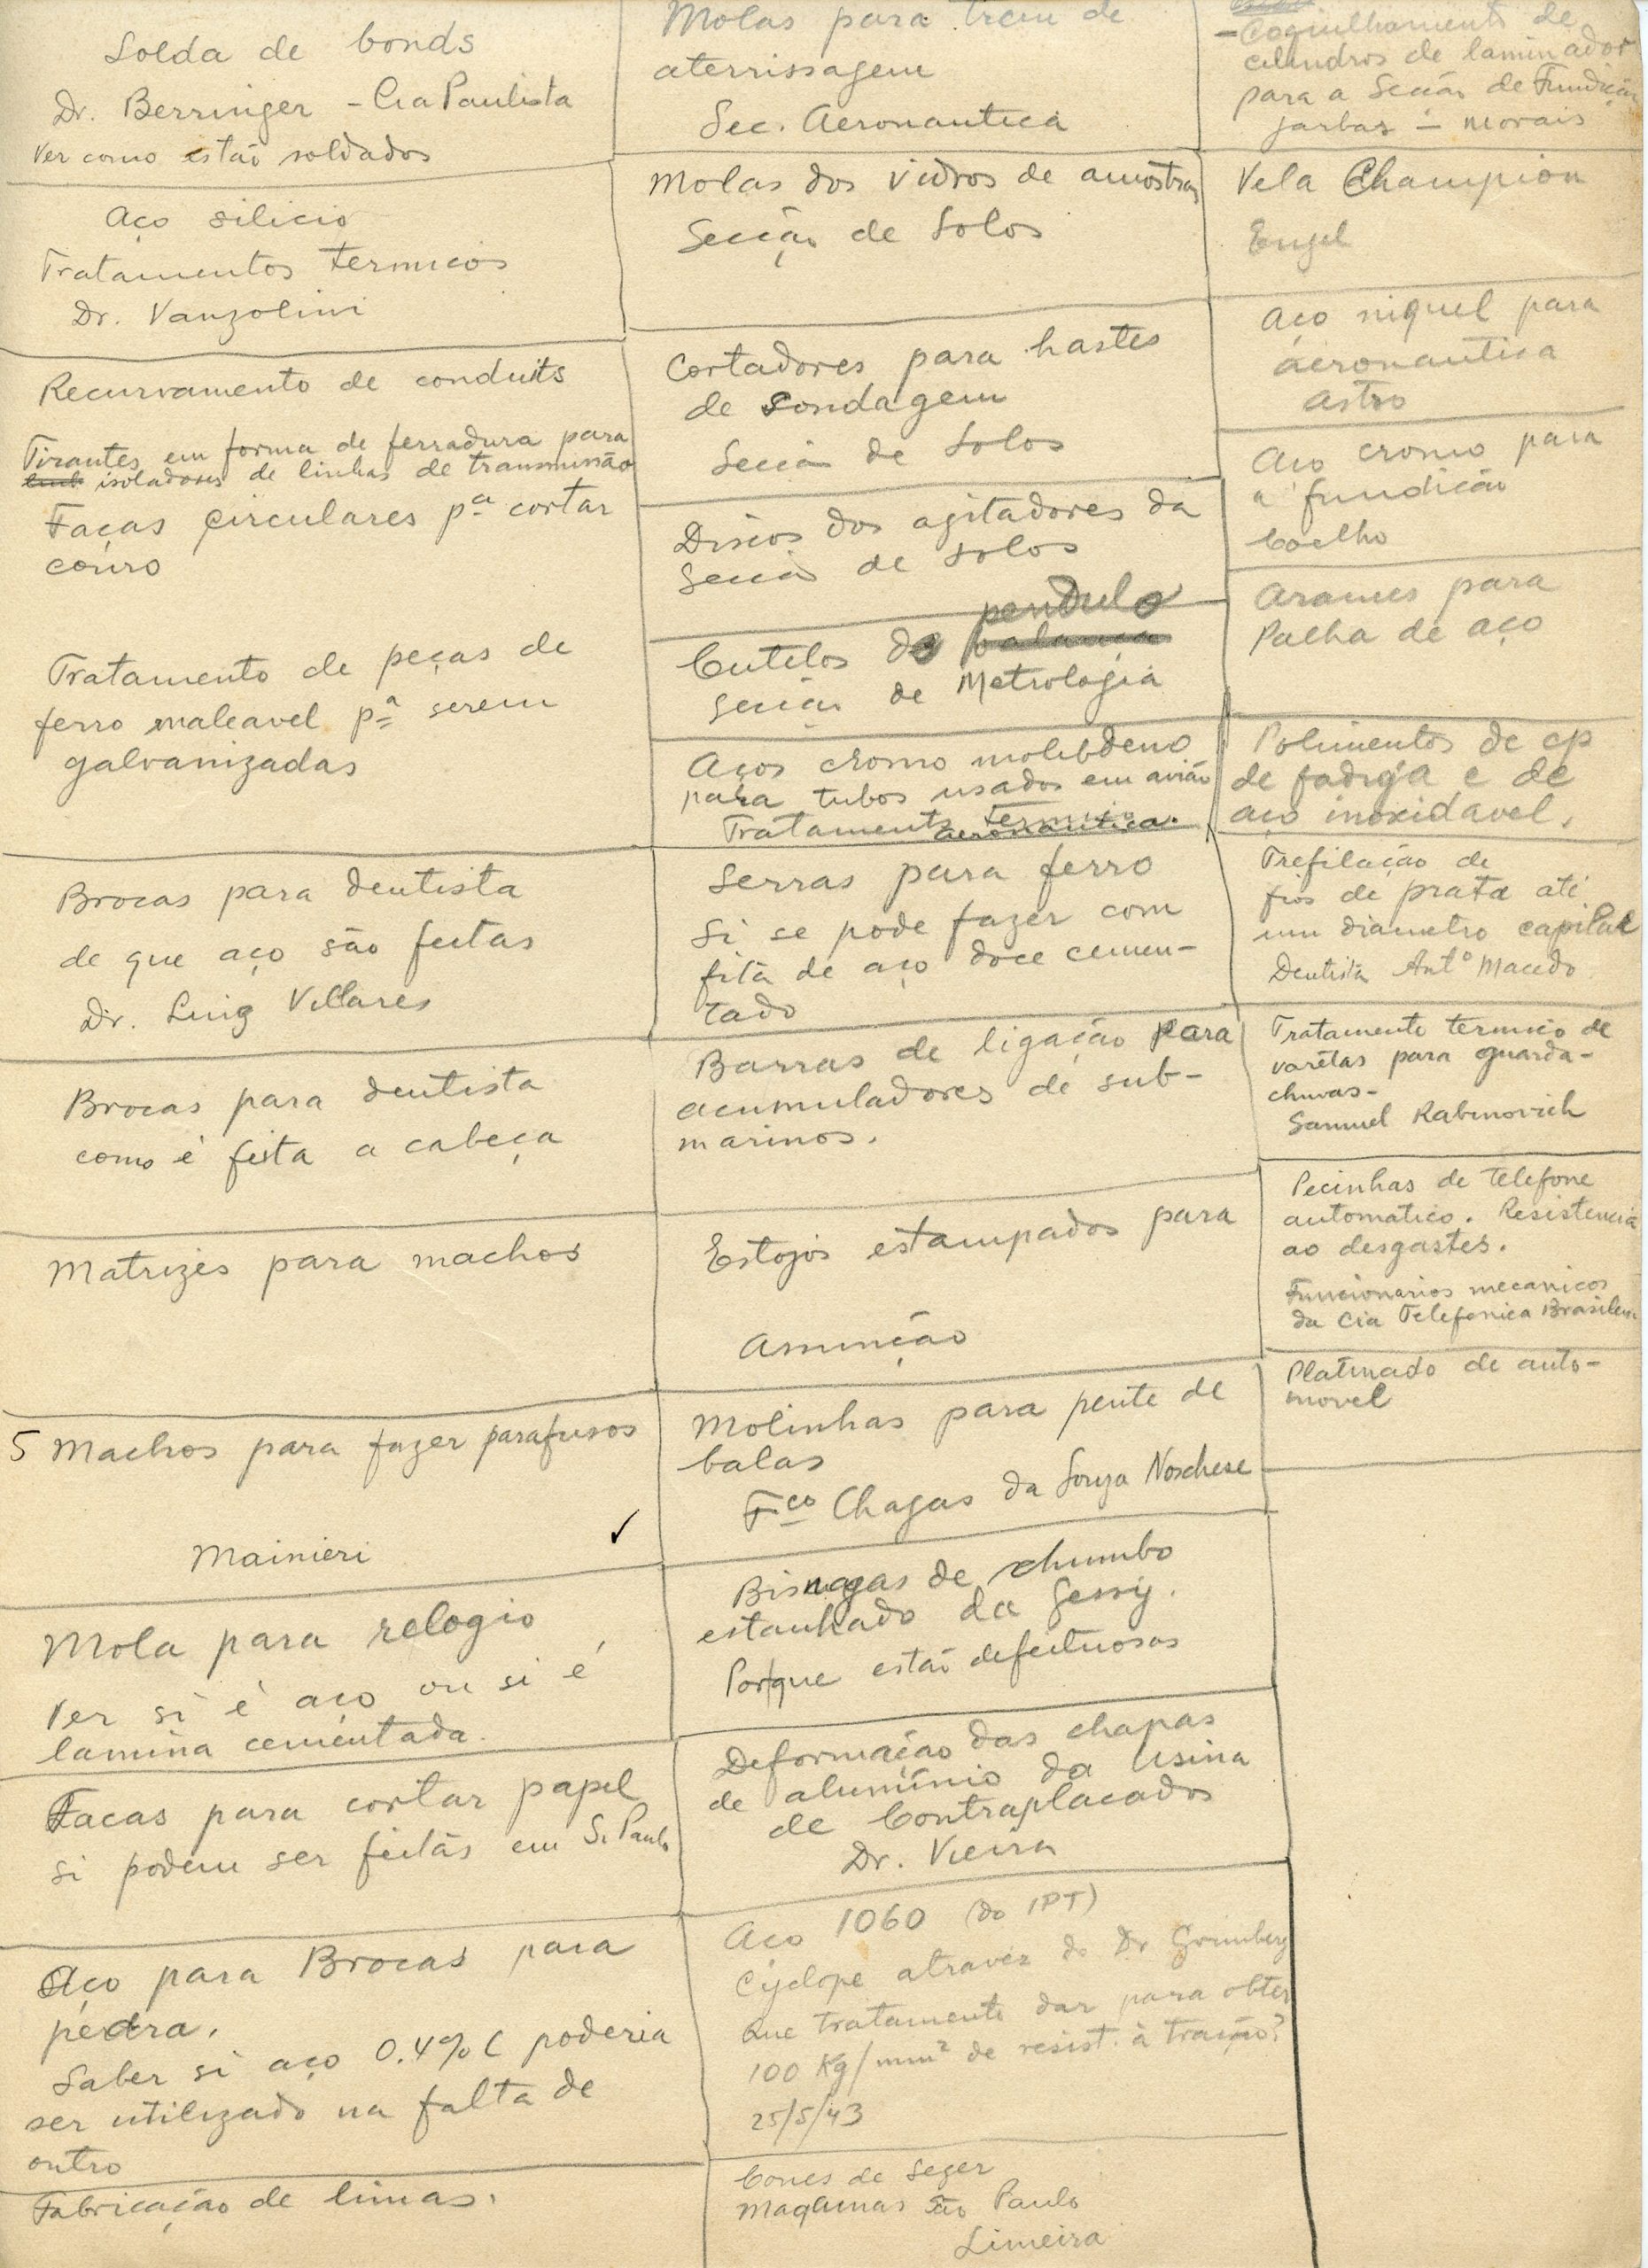 Solda de bonds
Dr. Berringer - Cia Paulista
Ver como estão soldados
Aço silicio
Tratamentos termicos
Dr. Vanzolini
Recurvamento de conduits
Tirantes em forma de ferradura para
isoladores de linhas de transmissão
Facas circulares pª cortar
couro
Tratamento de peças de
ferro maleavel pª serem
galvanizadas
Brocas para dentista
de que aço são feitas
Dr. Luiz Villares
Brocas para dentista
como é feita a cabeça
Matrizes para machos
5 Machos para fazer parafusos
Mainieri ✓
Mola para relogio
Ver si é aço ou si é
lamina cementada.
Facas para cortar papel
si podem ser feitas em S. Paulo
Aço para Brocas para
pedra.
Saber si aço 0.4% C poderia
ser utilizado na falta de
outro
Fabricação de limas.
Molas para trem de
aterrissagem
Sec. Aeronautica
Molas dos vidros de amostras
Secção de Solos
Cortadores para hastes
de sondagem
Secção de Solos
Discos dos agitadores da
Secção de Solos
pendulo
Cutelos do balança
Secção de Metrologia
Aços cromo molibdeno
para tubos usados em avião
Tratamento termico
aeronautica.
Serras para ferro
Si se pode fazer com
fita de aço doce cemen-
tado
Barras de ligação para
acumuladores de sub-
marinos.
Estojos estampados para
Asmunção
Molinhas para pente de
balas
Fco Chagas da Souza Noschese
Bisnagas de chumbo
estanhado da Gessy.
Porque estão defeituosas
Deformação das chapas
de aluminio da Usina
de Contraplacados
Dr. Vieira
Aço 1060 (do IPT)
Cyclope através do Dr Grinberg
Que tratamento dar para obter
100 Kg/mm² de resist. à tração?
25/5/43
Cones de Seger
Maquinas São Paulo
Limeira
- Coquilhamento de
cilindros de laminador
para a Secção de Fundição
Jarbas - Morais
Vela Champion
Engel
Aço niquel para
aeronautica
Astro
Aço cromo para
a fundição
Coelho
Arames para
Palha de aço
Polimentos de cp
de fadiga e de
aço inoxidavel.
Trefilação de
fios de prata até
um diametro capilar
Dentista Antº Macedo.
Tratamento termico de
varetas para guarda-
chuvas-
Samuel Rabinovich
Pecinhas de telefone
automatico. Resistencia
ao desgastes.
Funcionarios mecanicos
da Cia Telefonica Brasileira
Platinado de auto-
movel